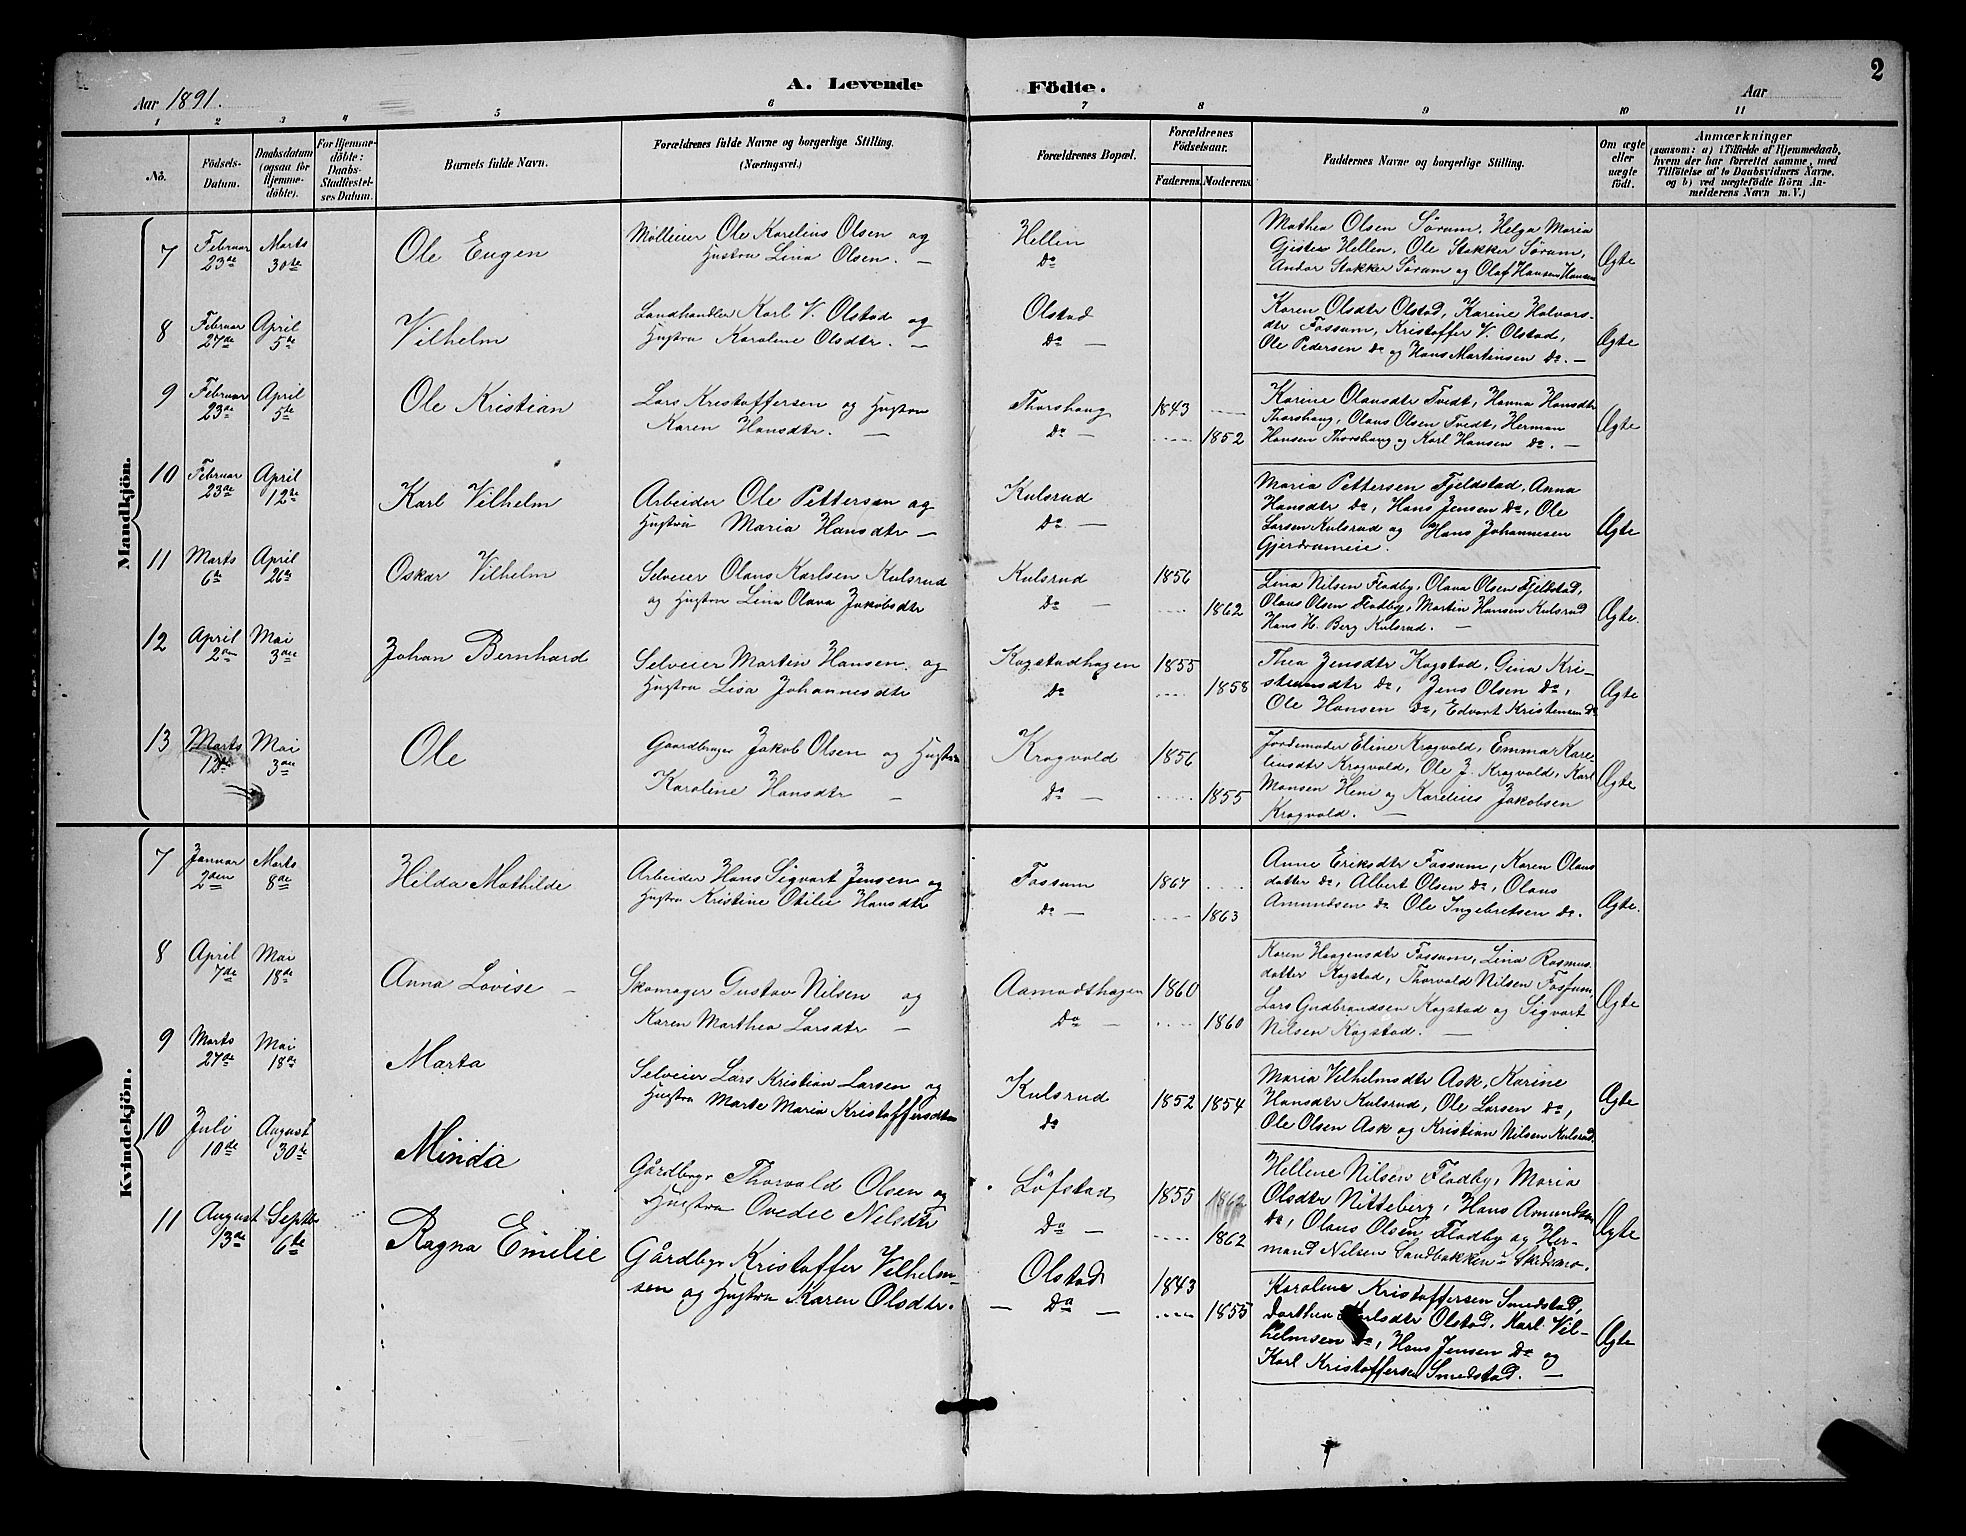 Aar 1891.
A. Levende Födte.
Aar
2
1 2 3 4 5 6 7 8 9 10 11
No.
Födsels-Datum.
Daabsdatum (ogsaa for Hjemme-döbte).
For Hjemme-döbte: Daabs-Stadfæstel-ses Datum.
Barnets fulde Navn.
Forældrenes fulde Navne og borgerlige Stilling. (Næringsvei.)
Forældrenes Bopæl.
Forældrenes Födselsaar.
Faderens. Moderens.
Faddernes Navne og borgerlige Stilling.
Om ægte eller uægte födt.
Anmærkninger
(saasom: a) i Tilfælde af Hjemmedaab, hvem der har forrettet samme, med Tilföielse af to Daabsvidners Navne, og b) ved uægtefödte Börn An-melderens Navn m. V.)
Mandkjön.
7 Februar 23de Marts 30te Ole Eugen
Mölleier Ole Karelius Olsen og
Hustru Lina Olsen. —
Hellin
Do
Mathea Olsen Sörum, Helga Maria
Hellen, Ole Stakker Sörum,
Andor Stakker Sörum og Olaf Hansen Hansen
Ægte
8 Februar 27de April 5te Vilhelm
Landhandler Karl V. Olstad og
Hustru Karoline Olsdtr. —
Olstad
Do —
Karen Olsdtr Olstad, Karine Halvors-
dtr Fossum, Kristoffer V. Olstad,
Ole Pedersen Do og Hans Martinsen Do. —
Ægte
9 Februar 23de April 5te Ole Kristian
Lars Kristoffersen og Hustru
Karen Hansdtr. —
Thorshaug 1843
Do — 1852
Karine Olausdtr Tvedt, Hanna Hansdtr
Thorshaug, Olaus Olsen Tvedt, Herman
Hansen Thorshaug og Karl Hansen Do. —
Ægte
10 Februar 23de April 12te Karl Vilhelm
Arbeider Ole Pettersen og
Hustru Maria Hansdtr —
Kulsrud
Do. —
Maria Pettersen Fjeldstad, Anna
Hansdtr Do, Hans Jensen Do, Ole
Larsen Kulsrud og Hans Johannesen
Gjerdrumeie.
Ægte
11 Marts 6te April 26de Oskar Vilhelm
Selveier Olaus Karlsen Kulsrud
og Hustru Lina Olava Jakobsdtr
Kulsrud 1856
Do — 1862
Lina Nilsen Fladby, Olava Olsen Fjellstad,
Olaus Olsen Fladby, Martin Hansen Kulsrud
Hans H. Berg Kulsrud. —
Ægte.
12 April 2den Mai 3die Johan Bernhard
Selveier Martin Hansen og
Hustru Lisa Johannesdtr
Kogstadhagen 1855
Do 1858
Thea Jensdtr Kogstad, Gina Kri-
stiansdtr Do, Jens Olsen Do,
Ole Hansen Do, Edvart Kristensen Do
Ægte
13 Marts 12te Mai 3die Ole
Gaardbruger Jakob Olsen og Hustru
Karoline Hansdtr —
Krogvold 1856
Do — 1855
Jordemoder Eline Krogvold, Emma Kare-
liusdtr Krogvold, Ole J. Krogvold, Karl
Monsen Heni og Karelius Jakobsen
Krogvold. —
Ægte
Kvindekjön.
7 Januar 2den Marts 8de Hilda Mathilde
Arbeider Hans Sigvart Jensen og
Hustru Kristine Otilie Hansdtr
Fossum 1864
Do — 1863
Anne Eriksdtr Fossum, Karen Olaus
datter Do, Albert Olsen Do, Olaus
Amundsen Do Ole Ingebretsen Do.
Ægte.
8 April 7de Mai 18de Anna Lovise —
Skomager Gustav Nilsen og
Karen Marthea Larsdtr —
Aamodthagen 1860
Do — 1860
Karen Haagensdtr Fossum, Lina Rasmus-
datter Kogstad, Thorvald Nilsen Fossum,
Lars Gudbrandsen Kogstad og Sigvart
Nilsen Kogstad. —
Ægte
9 Marts 27de Mai 18de Marta
Selveier Lars Kristian Larsen og
Hustru Marte Maria Kristoffersdtr
Kulsrud 1852 1854
Do
Maria Vilhelmsdtr Ask, Karine
Hansdtr Kulsrud, Ole Larsen Do,
Ole Olsen Ask og Kristian Nilsen Kulsrud.
Ægte
10 Juli 10de August 30te Minda
Gårdbrgr Thorvald Olsen og
Hustru Ovedie Nilsdtr
Löfstad 1855 1862
Do — 1862
Hellene Nilsen Fladby, Maria
Olsdtr Nitteberg, Hans Amundsen
Do, Olaus Olsen Fladby og Her-
mand Nilsen Sandbakken i Skedsmo.
Ægte
11 August 13de Septbr 6te Ragna Emilie
Gårdbgr Kristoffer Vilhelm-
sen og Hustru Karen Olsdtr.
Olstad 1843
— Do — 1855
Karoline Kristoffersen Smedstad,
Dorthea Olstad, Karl Vil-
helmsen Do, Hans Jensen Do og
Karl Kristoffersen Smedstad. —
Ægte